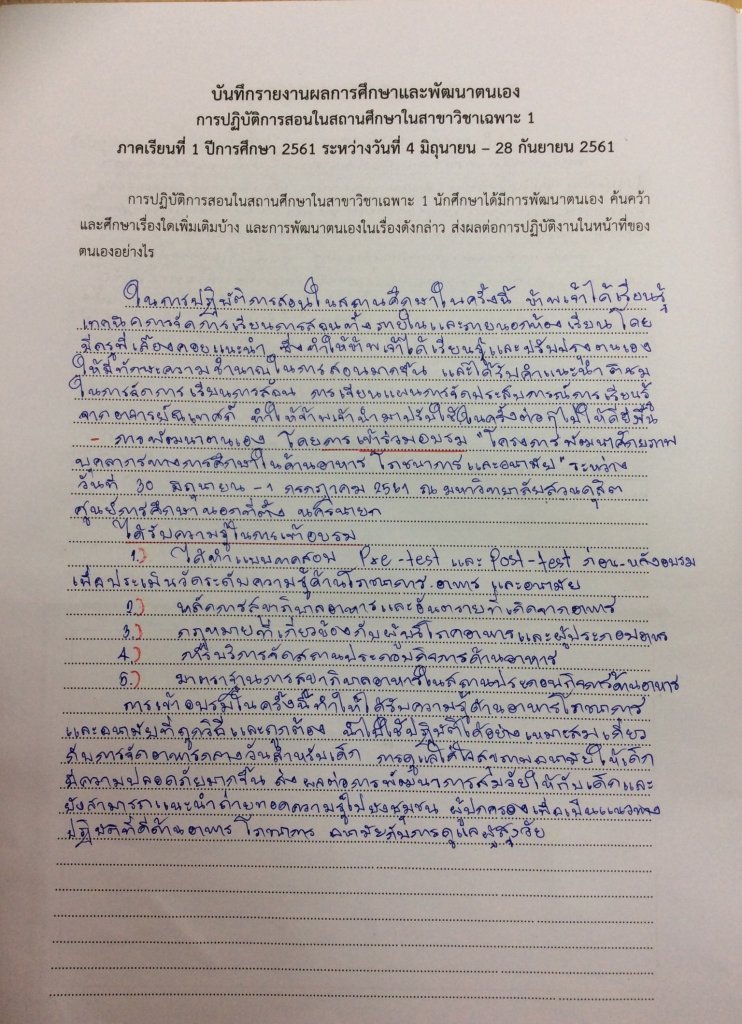 บันทึกรายงานผลการศึกษาและพัฒนาตนเอง
การปฏิบัติการสอนในสถานศึกษาในสาขาวิชาเฉพาะ 1
ภาคเรียนที่ 1 ปีการศึกษา 2561 ระหว่างวันที่ 4 มิถุนายน – 28 กันยายน 2561
การปฏิบัติการสอนในสถานศึกษาในสาขาวิชาเฉพาะ 1 นักศึกษาได้มีการพัฒนาตนเอง ค้นคว้า
และศึกษาเรื่องใดเพิ่มเติมบ้าง และการพัฒนาตนเองในเรื่องดังกล่าว ส่งผลต่อการปฏิบัติงานในหน้าที่ของ
ตนเองอย่างไร
ในการปฏิบัติการสอนในสถานศึกษาในครั้งนี้ ข้าพเจ้าได้เรียนรู้
เทคนิคการจัดการเรียนการสอนทั้งภายในและภายนอกห้องเรียน โดย
มีครูพี่เลี้ยงคอยแนะนำ ซึ่งทำให้ข้าพเจ้าได้เรียนรู้และปรับปรุงตนเอง
ให้มีทักษะความชำนาญในการสอนมากขึ้น และได้รับคำแนะนำ
ในการจัดการเรียนการสอน การเขียนแผนการจัดประสบการณ์การเรียนรู้
จากอาจารย์นิเทศก์ ทำให้ข้าพเจ้านำมาปรับใช้ในครั้งต่อๆไปให้ดียิ่งขึ้น
- การพัฒนาตนเอง โดยการเข้าร่วมอบรม "โครงการพัฒนาศักยภาพ
บุคลากรทางการศึกษาในด้านอาหาร โภชนาการ และอนามัย" ระหว่าง
วันที่ 30 มิถุนายน - 1 กรกฎาคม 2561 ณ มหาวิทยาลัยสวนดุสิต
ศูนย์การศึกษานอกที่ตั้ง นครนายก
ได้รับความรู้ในการเข้าอบรม
1.) ได้ทำแบบทดสอบ Pre-test และ Post-test ก่อน-หลังอบรม
เพื่อประเมินวัดระดับความรู้ด้านโภชนาการ อาหาร และอนามัย
2.) หลักการสุขาภิบาลอาหารและอันตรายที่เกิดจากอาหาร
3.) กฎหมายที่เกี่ยวข้องกับผู้บริโภคอาหารและผู้ประกอบอาหาร
4.) การจัดสถานประกอบกิจการด้านอาหาร
5.) มาตราฐานการสุขาภิบาลอาหารในสถานประกอบกิจการด้านอาหาร
การเข้าอบรมในครั้งนี้ทำให้ได้รับความรู้ด้านอาหารโภชนาการ
และอนามัยที่ถูกวิธีและถูกต้อง นำไปใช้ปฏิบัติได้อย่างเหมาะสมเกี่ยว
กับการจัดอาหารกลางวันสำหรับเด็ก การดูแลใส่ใจสุขภาพอนามัยให้เด็ก
มีความปลอดภัยมากขึ้น ส่งผลต่อการพัฒนาการสมวัยให้กับเด็กและ
ยังสามารถแนะนำถ่ายทอดความรู้ไปยังชุมชน ผู้ปกครองเพื่อเป็นแนวทาง
ปฏิบัติที่ดีด้านอาหาร โภชนาการ อนามัยกับการดูแลผู้สูงวัย